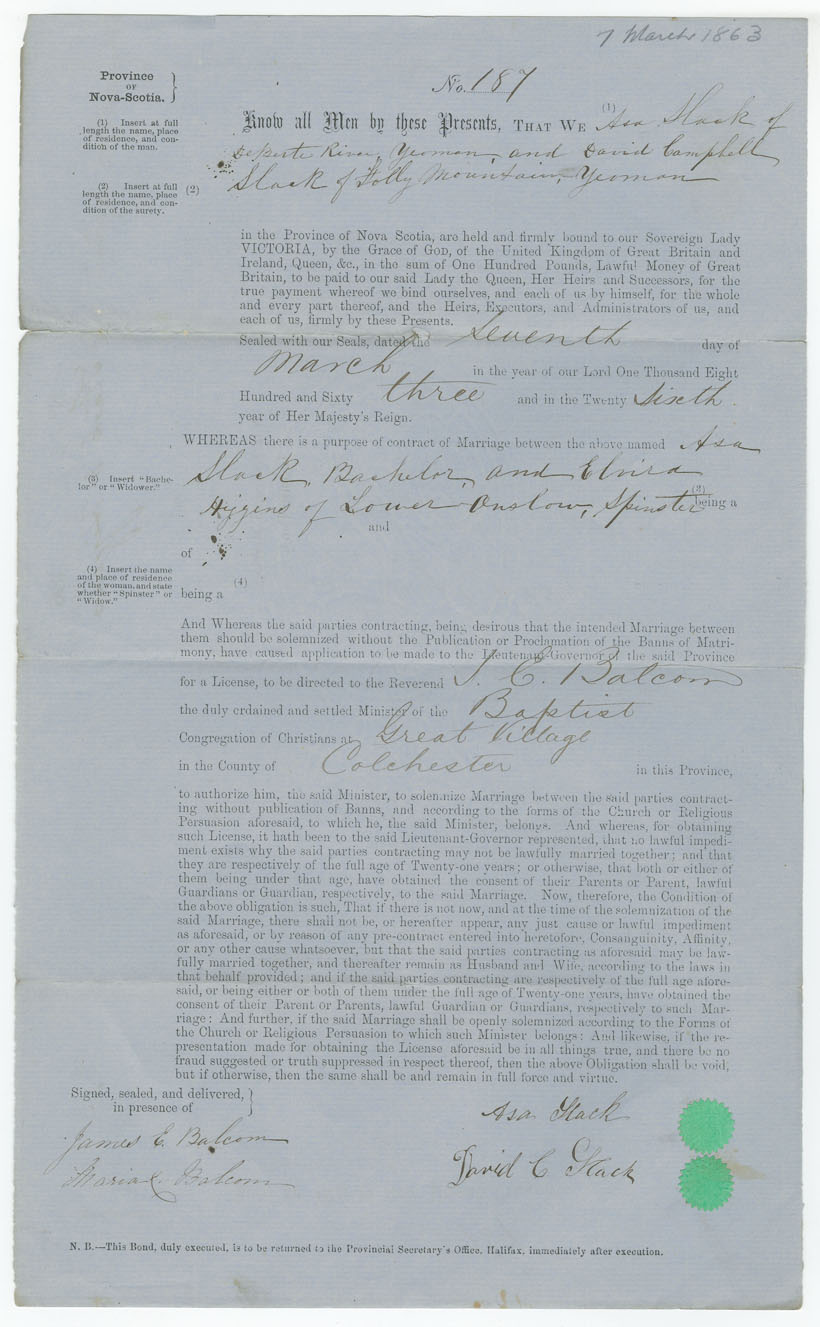 7 March 1863
Province
OF
Nova-Scotia.
No. 187
(1) Insert at full
length the name, place
of residence, and con-
dition of the man.
Know all Men by these Presents, THAT WE (1) Asa Slack of
River, Yeoman, and David Campbell
(2) Insert at full
length the name, place
of residence, and con-
dition of the surety.
(2) Slack of Folly Mountain, Yeoman
in the Province of Nova Scotia, are held and firmly bound to our Sovereign Lady
VICTORIA, by the Grace of GOD, of the United Kingdom of Great Britain and
Ireland, Queen, &c., in the sum of One Hundred Pounds, Lawful Money of Great
Britain, to be paid to our said Lady the Queen, Her Heirs and Successors, for the
true payment whereof we bind ourselves, and each of us by himself, for the whole
and every part thereof, and the Heirs, Executors, and Administrators of us, and
each of us, firmly by these Presents.
Sealed with our Seals, dated the Seventh day of
March in the year of our Lord One Thousand Eight
Hundred and Sixty three and in the Twenty Sixth
year of Her Majesty's Reign.
WHEREAS there is a purpose of contract of Marriage between the above named Asa
(3) Insert "Bache-
lor" or "Widower."
Slack, Bachelor, and Elvira
Higgins of Lower Onslow, Spinster (3) being a
and
of
(4) Insert the name
and place of residence
of the woman, and state
whether "Spinster" or
"Widow."
(4)
being a
And Whereas the said parties contracting, being desirous that the intended Marriage between
them should be solemnized without the Publication or Proclamation of the Banns of Matri-
mony, have caused application to be made to the Lieutenant-Governor of the said Province
for a License, to be directed to the Reverend J. E. Balcom
the duly ordained and settled Minister of the Baptist
Congregation of Christians at Great Village
in the County of Colchester in this Province,
to authorize him, the said Minister, to solemnize Marriage between the said parties contract-
ing without publication of Banns, and according to the forms of the Church or Religious
Persuasion aforesaid, to which he, the said Minister, belongs. And whereas, for obtaining
such License, it hath been to the said Lieutenant-Governor represented, that no lawful impedi-
ment exists why the said parties contracting may not be lawfully married together; and that
they are respectively of the full age of Twenty-one years; or otherwise, that both or either of
them being under that age, have obtained the consent of their Parents or Parent, lawful
Guardians or Guardian, respectively, to the said Marriage. Now, therefore, the Condition of
the above obligation is such, That if there is not now, and at the time of the solemnization of the
said Marriage, there shall not be, or hereafter appear, any just cause or lawful impediment
as aforesaid, or by reason of any pre-contract entered into heretofore, Consanguinity, Affinity,
or any other cause whatsoever, but that the said parties contracting as aforesaid may be law-
fully married together, and thereafter remain as Husband and Wife, according to the laws in
that behalf provided; and if the said parties contracting are respectively of the full age afore-
said, or being either or both of them under the full age of Twenty-one years, have obtained the
consent of their Parent or Parents, lawful Guardian or Guardians, respectively to such Mar-
riage: And further, if the said Marriage shall be openly solemnized according to the Forms of
the Church or Religious Persuasion to which such Minister belongs: And likewise, if the re-
presentation made for obtaining the License aforesaid be in all things true, and there be no
fraud suggested or truth suppressed in respect thereof, then the above Obligation shall be void,
but if otherwise, then the same shall be and remain in full force and virtue.
Signed, sealed, and delivered,
in presence of
Asa Slack
James E. Balcom
David C Slack
Maria Balcom
N. B.—This Bond, duly executed, is to be returned to the Provincial Secretary's Office, Halifax, immediately after execution.